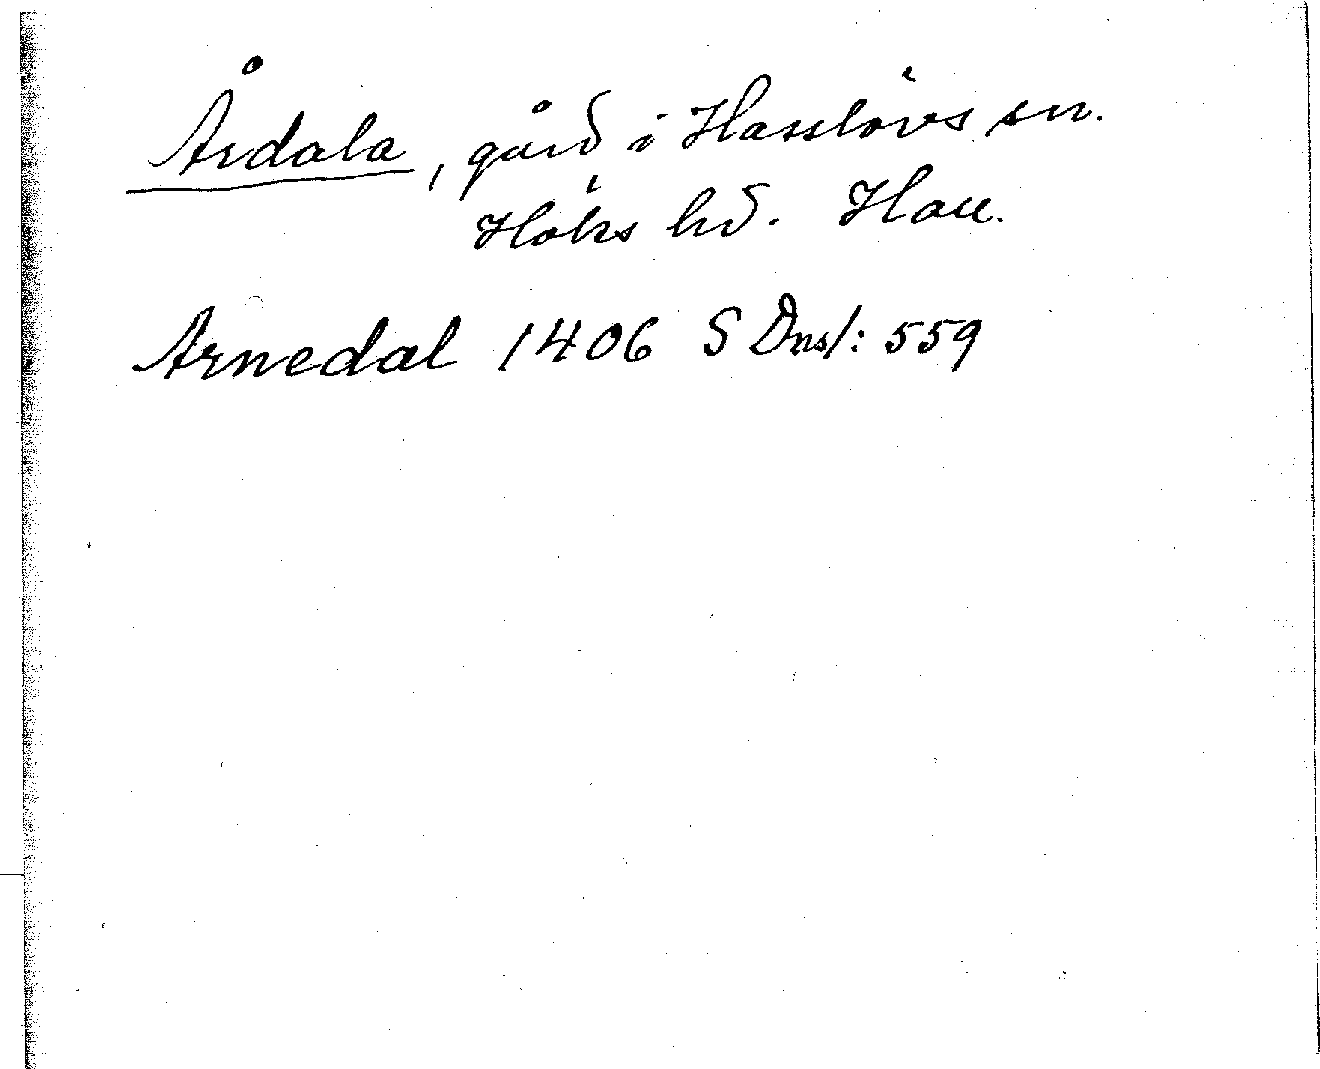 Årdala, gård i Hasslövs sn.
Höks hd. Hall.
Arnedal 1406 S Dnsl: 559